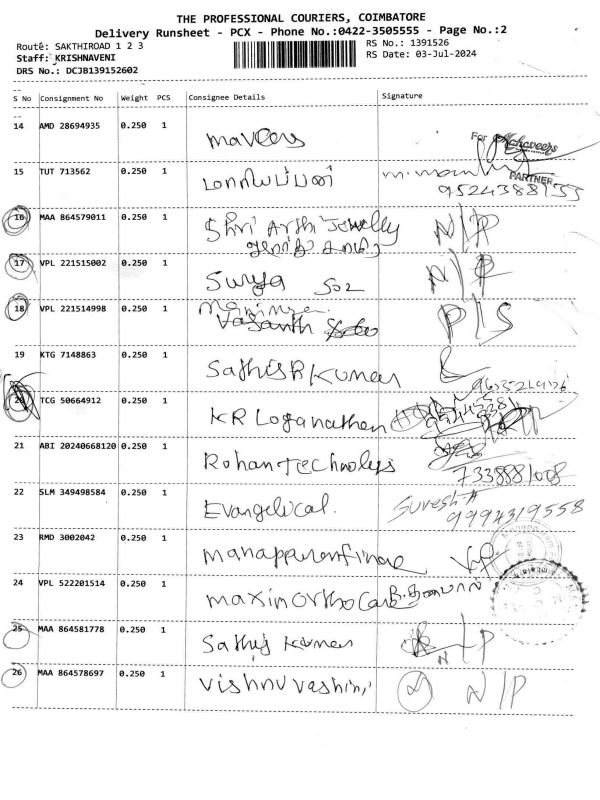 THE PROFESSIONAL COURIERS, COIMBATORE
Delivery Runsheet - PCX - Phone No.:0422-3505555 - Page No.:2
Route: SAKTHIROAD 1 2 3
RS No.: 1391526
Staff: KRISHNAVENI
RS Date: 03-Jul-2024
DRS No.: DCJB139152602
--
S No Consignment No Weight PCS Consignee Details Signature
--
14 AMD 28694935 0.250 1 Maveers For Mahaveers
PARTNER
15 TUT 713562 0.250 1
16 MAA 864579011 0.250 1 Shri Arthi Jewelly N/P
17 VPL 221515002 0.250 1 Surya N/P
18 VPL 221514998 0.250 1 Vasanth P/S
19 KTG 7148863 0.250 1 Sathis R Kumar
20 TCG 50664912 0.250 1 KR Loganathan
21 ABI 20240668120 0.250 1 Rohan Technologs 7338881008
22 SLM 349498584 0.250 1 Evangelical. Suresh
9994319558
23 RMD 3002042 0.250 1 manappuranfinae
24 VPL 522201514 0.250 1 maxim ortho Care
25 MAA 864581778 0.250 1 Sathis Kumar N/P
26 MAA 864578697 0.250 1 Vishnuvashini N/P